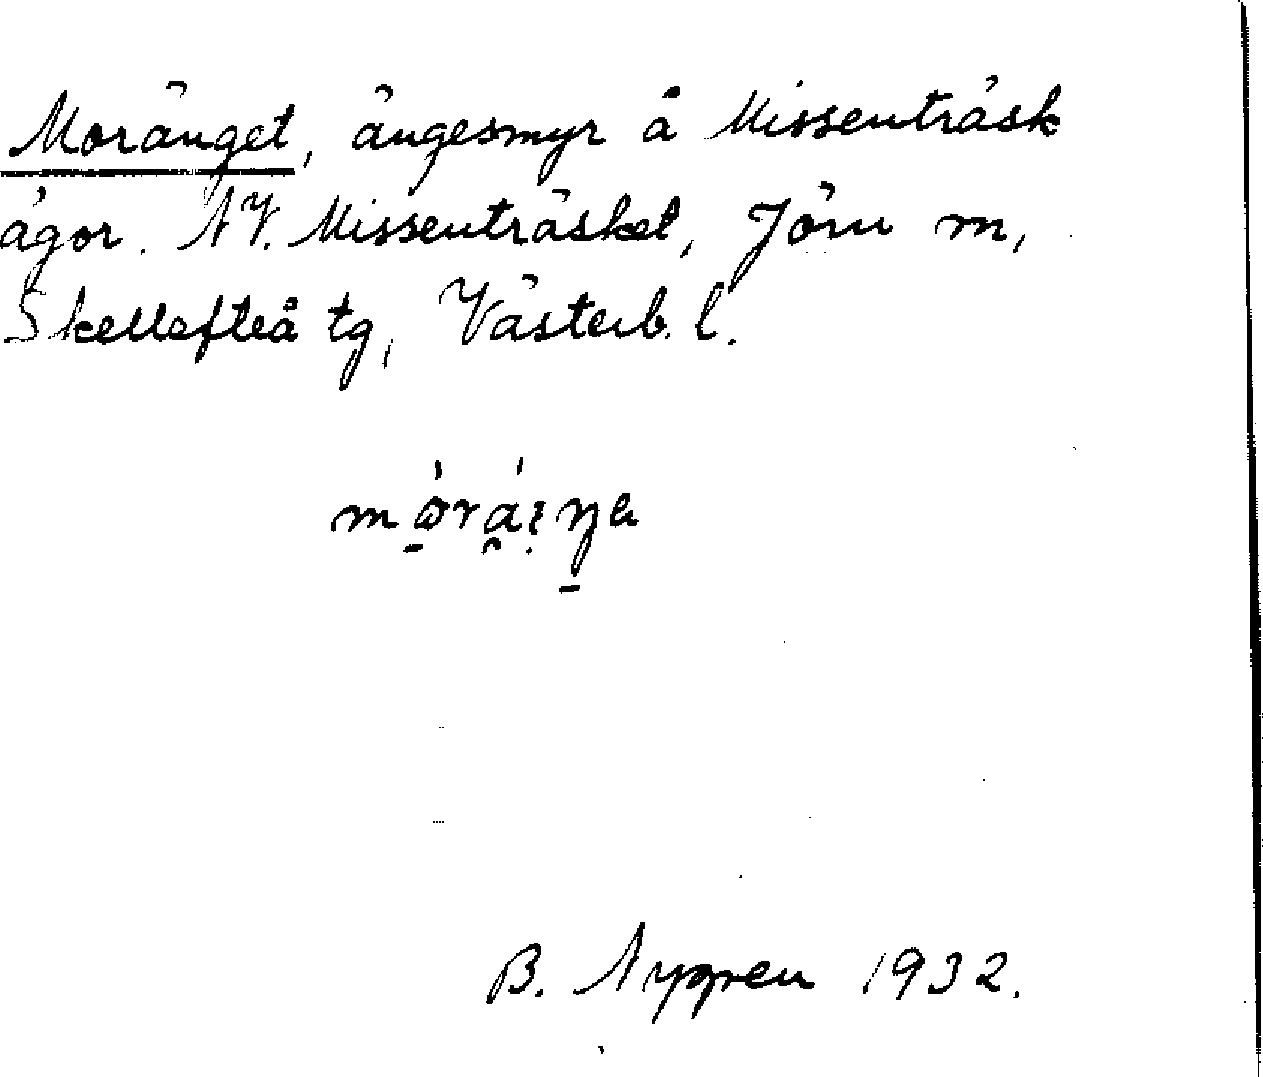 Moränget, ängesmyr å Missenträsk
ägor. NV. Missenträsket, Jörn m,
Skellefteå tg, Västerb. l.
B. Nygren 1932.